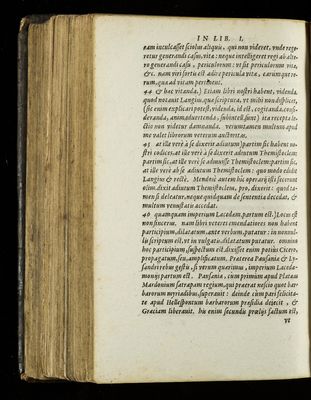 IN LIB. I.
eam inculcasset sciolus aliquis, qui non videret, vnde rege-
retur generandi casu, vita: neque intelligeret regi ab alte-
ro generandi casu, periculorum: vt sit periculorum vita,
&c. nam viri fortis est adire pericula vitæ, earumque re-
rum, quæ ad vitam pertinent.
44 & hæc vitanda.) Etiam libri nostri habent, videnda.
quod notauit Langius, quæ scriptura, vt mihi non displicet,
(sic enim explicari potest, videnda, id est, cogitanda, consi-
deranda, animaduertenda, subintelligi sunt) ita recepta le-
ctio non videtur damnanda. veruntamen multum apud
me valet librorum veterum auctoritas.
45 at ille verè à se dixerit adiutum) partim sic habent no-
stri codices, at ille verè à se dixerit adiutum Themistoclem:
partim sic, at ille verè se admonisse Themistoclem: partim sic,
at ille verè ab se adiutum Themistoclem: quo modo edidit
Langius & rectè. Mendum autem hîc operarij illi fecerunt
olim. dixit adiutum Themistoclem, pro, dixerit: quod ta-
men si deleatur, neque quidquam de sententia decedat, &
multum venustatis accedat.
46 quamquam imperium Lacedæm. partum est.) Locus est
non sincerus. nam libri veteres emendatiores non habent
participium, dilatatum, ante verbum, putatur: in nonnul-
lis scriptum est, vt in vulgatis, dilatatum putatur. omnino
hoc participium, suspectum est. dixisset enim potius Cicero,
propagatum, seu, amplificatum. Præterea Pausaniæ & Ly-
sandri rebus gestis, si verum quærimus, imperium Lacedæ-
moniis partum est. Pausania, cum primùm apud Platæas
Mardonium satrapam regium, qui præerat nescio quot bar-
barorum myriadibus, superauit: deinde cùm pari felicita-
te apud Hellespontum barbarorum præsidia deiecit, &
Græciam liberauit. his enim secundis prœlijs factum est,
vt